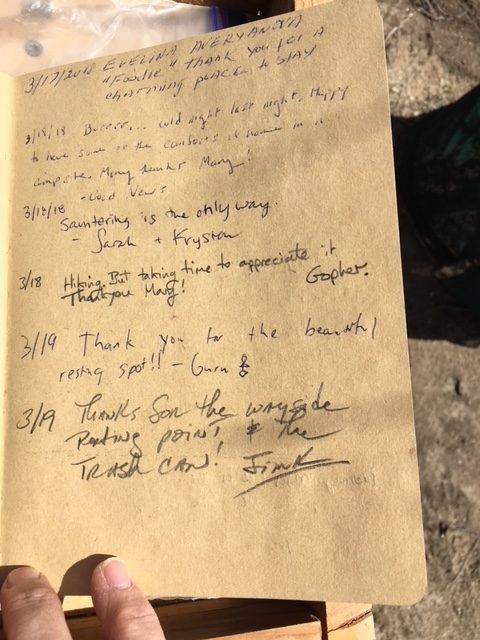 3/17/2018 EVELINA AVERYANOVA
"Foodie" THANK YOU FOR A
CHARMING PLACE TO STAY
3/18/18 Burrrr... cold night last night. Happy
to have some of the comforts of home in a
campsite. Many thanks Mary!
- Good Views
3/18/18 Sauntering is the only way.
- Sarah + Krystan
3/18 Hiking. But taking time to appreciate it
Thank you Mary! Gopher.
3/19 Thank you for the beautiful
resting spot!! - Guru
3/19 THANKS FOR THE WAYSIDE
POINT, & THE
TRASH CAN! JimK